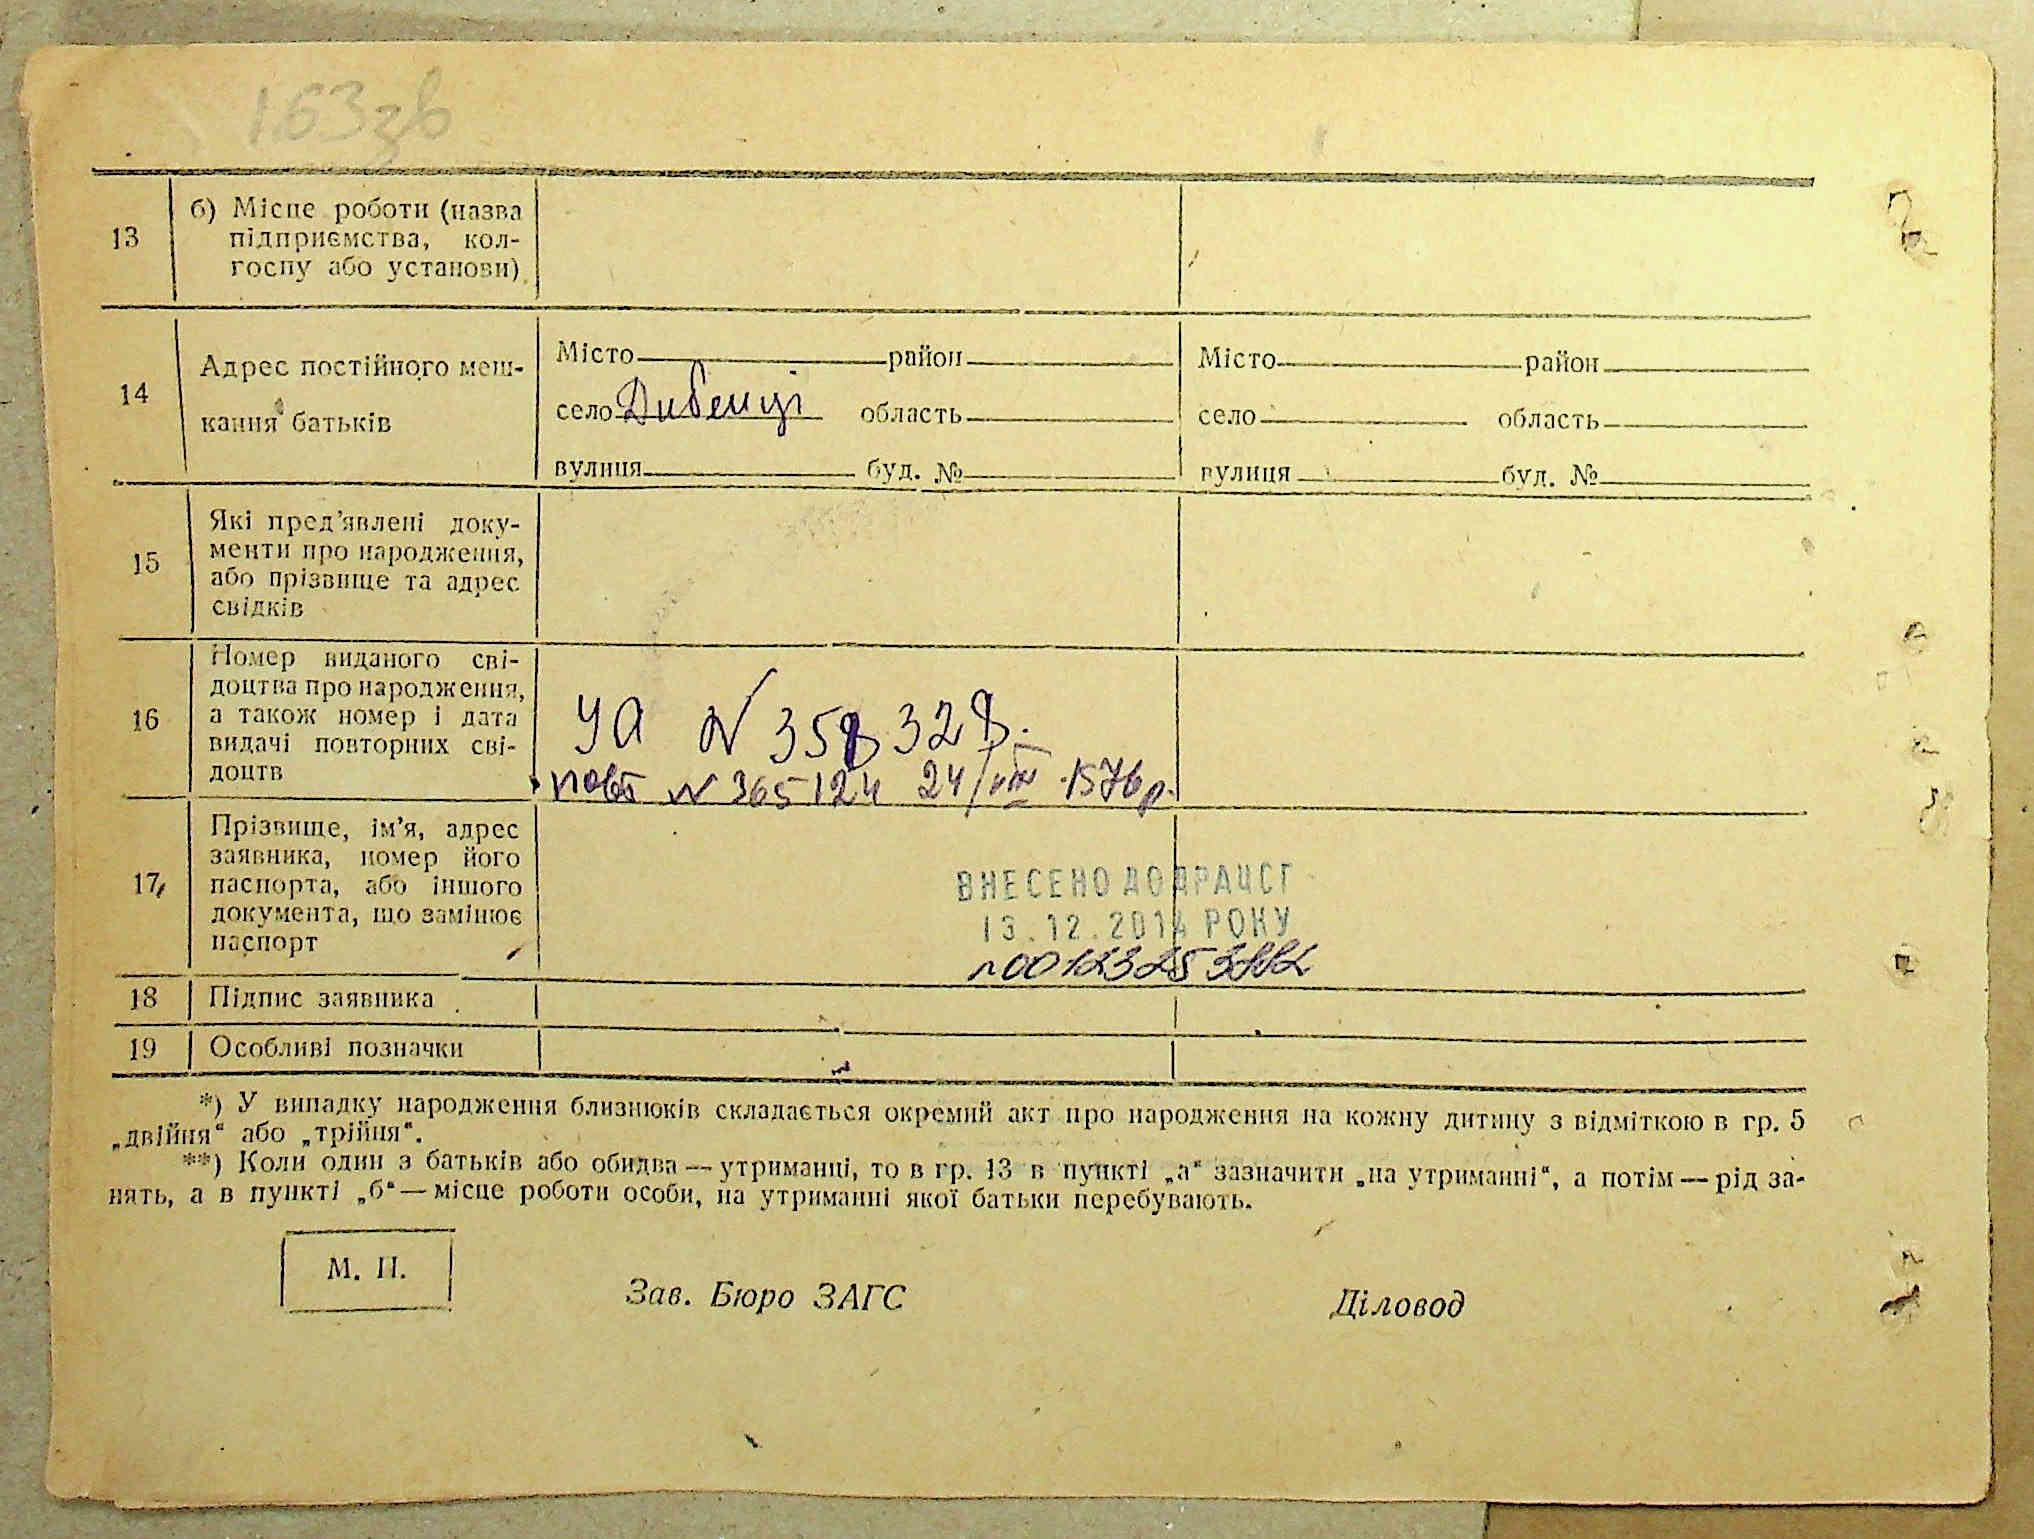 163зв
13
б) Місце роботи (назва
підприємства, кол-
госпу або установи)
14
Адрес постійного меш-
кання батьків
Місто район
село Дибенці область
вулиця буд. №
Місто район
село область
вулиця буд. №
15
Які пред'явлені доку-
менти про народження,
або прізвище та адрес
свідків
16
Номер виданого сві-
доцтва про народження,
а також номер і дата
видачі повторних сві-
доцтв
УА N 358328.
повт N 365124 24/VIII 1576 р.
17
Прізвище, ім'я, адрес
заявника, номер його
паспорта, або іншого
документа, що замінює
паспорт
ВНЕСЕНО ДО ДРАЦСГ
13.12.2014 РОКУ
18 Підпис заявника
19 Особливі позначки
*) У випадку народження близнюків складається окремий акт про народження на кожну дитину з відміткою в гр. 5
„двійня“ або „трійня“.
**) Коли один з батьків або обидва — утриманці, то в гр. 13 в пункті „а“ зазначити „на утриманні“, а потім — рід за-
нять, а в пункті „б“ — місце роботи особи, на утриманні якої батьки перебувають.
М. П.
Зав. Бюро ЗАГС
Діловод